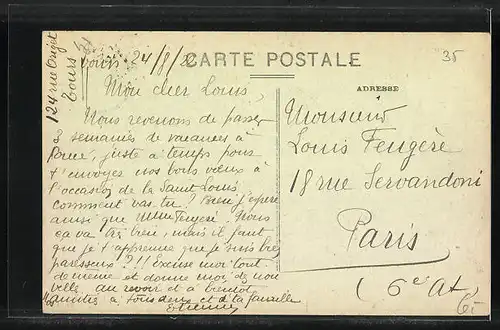 124 rue Origet
Tours
Tours 24/8/2
CARTE POSTALE
35
Mon cher Louis,
ADRESSE
Nous revenons de passer
3 semaines de vacances à
juste à temps pour
t'envoyer nos bons vœux à
l'occasion de la Saint Louis,
comment vas tu ? Bien j'espère
ainsi que Mme Feugère. Nous
ça va très bien, mais il faut
que je t'apprenne que je suis très
paresseux ?!! Excuse moi tout
de même et donne moi de nou
velle, au revoir et à bientôt
amitié à tous deux et à ta famille
Etienne
Monsieur
Louis Feugère
18 rue Servandoni
Paris
(6e At)